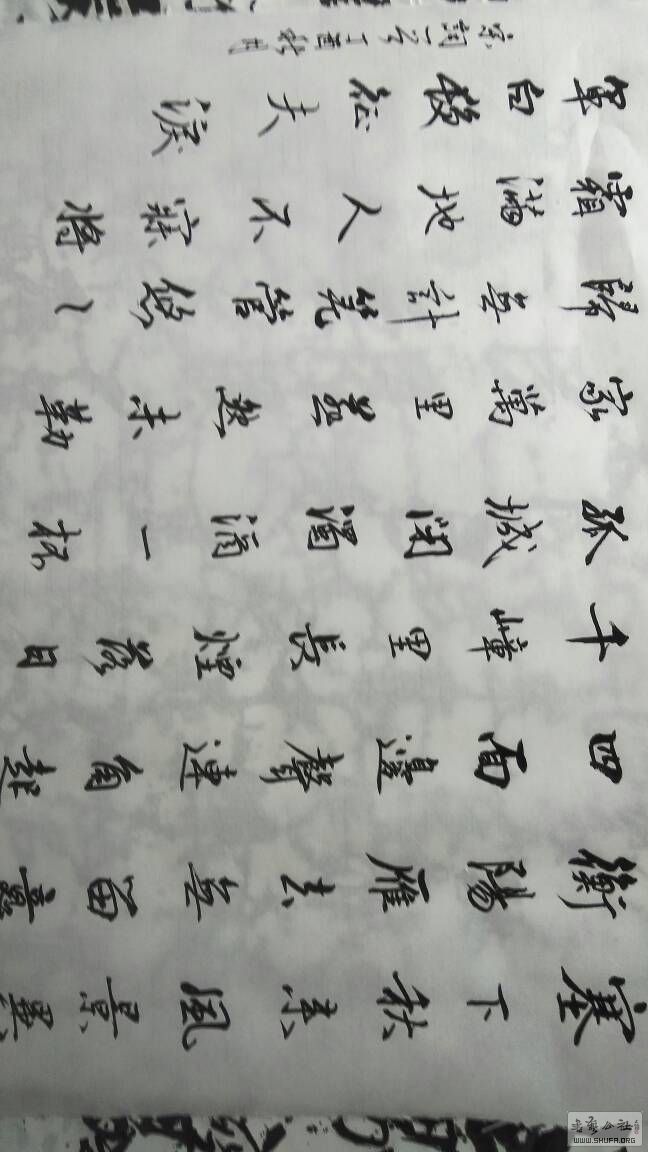 塞下秋来風景異
衡陽雁去无留意
四面邊聲連角起
千嶂里長煙落日
孤城閉濁酒一杯
家萬里燕然未勒
歸无計羌管悠〻
霜滿地人不寐將
軍白髮征夫淚
宋詞一首丁酉秋月
书艺公社
WWW.SHUFA.ORG